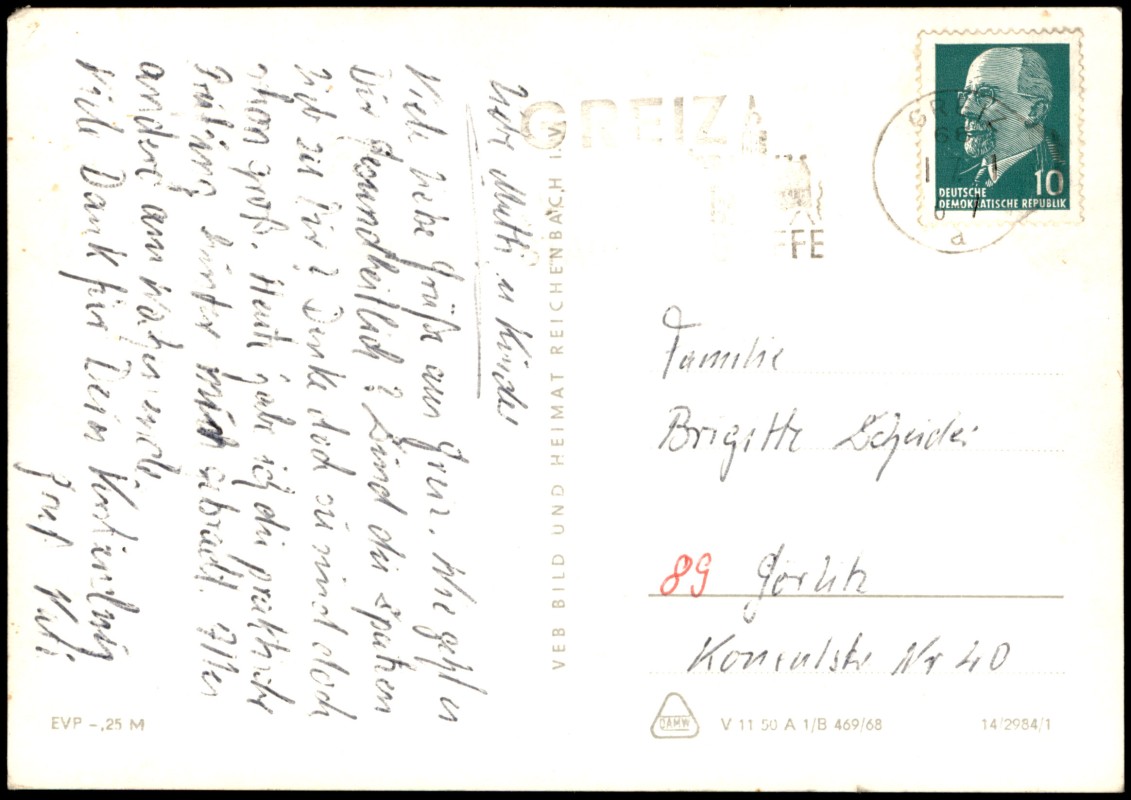 Liebe Mutti u Kinder
Viele liebe Grüße aus Greiz. Wie geht es
Dir gesundheitlich? Sind die Spatzen
lieb zu Dir? Denke doch sie sind doch
schon groß. Heute habe ich die praktische
Prüfung hinter mich gebracht. Alles
andere am Wochenende
Viele Dank für Dein
Gruß Vati
EVP -,25 M
VEB BILD UND HEIMAT REICHENBACH I. V.
GREIZ
GREIZ
66
a
DEUTSCHE
DEMOKRATISCHE REPUBLIK
10
Familie
Brigitte
89 Görlitz
Konsulstr Nr 40
DAMW
V 11 50 A 1/B 469/68
14/2984/1